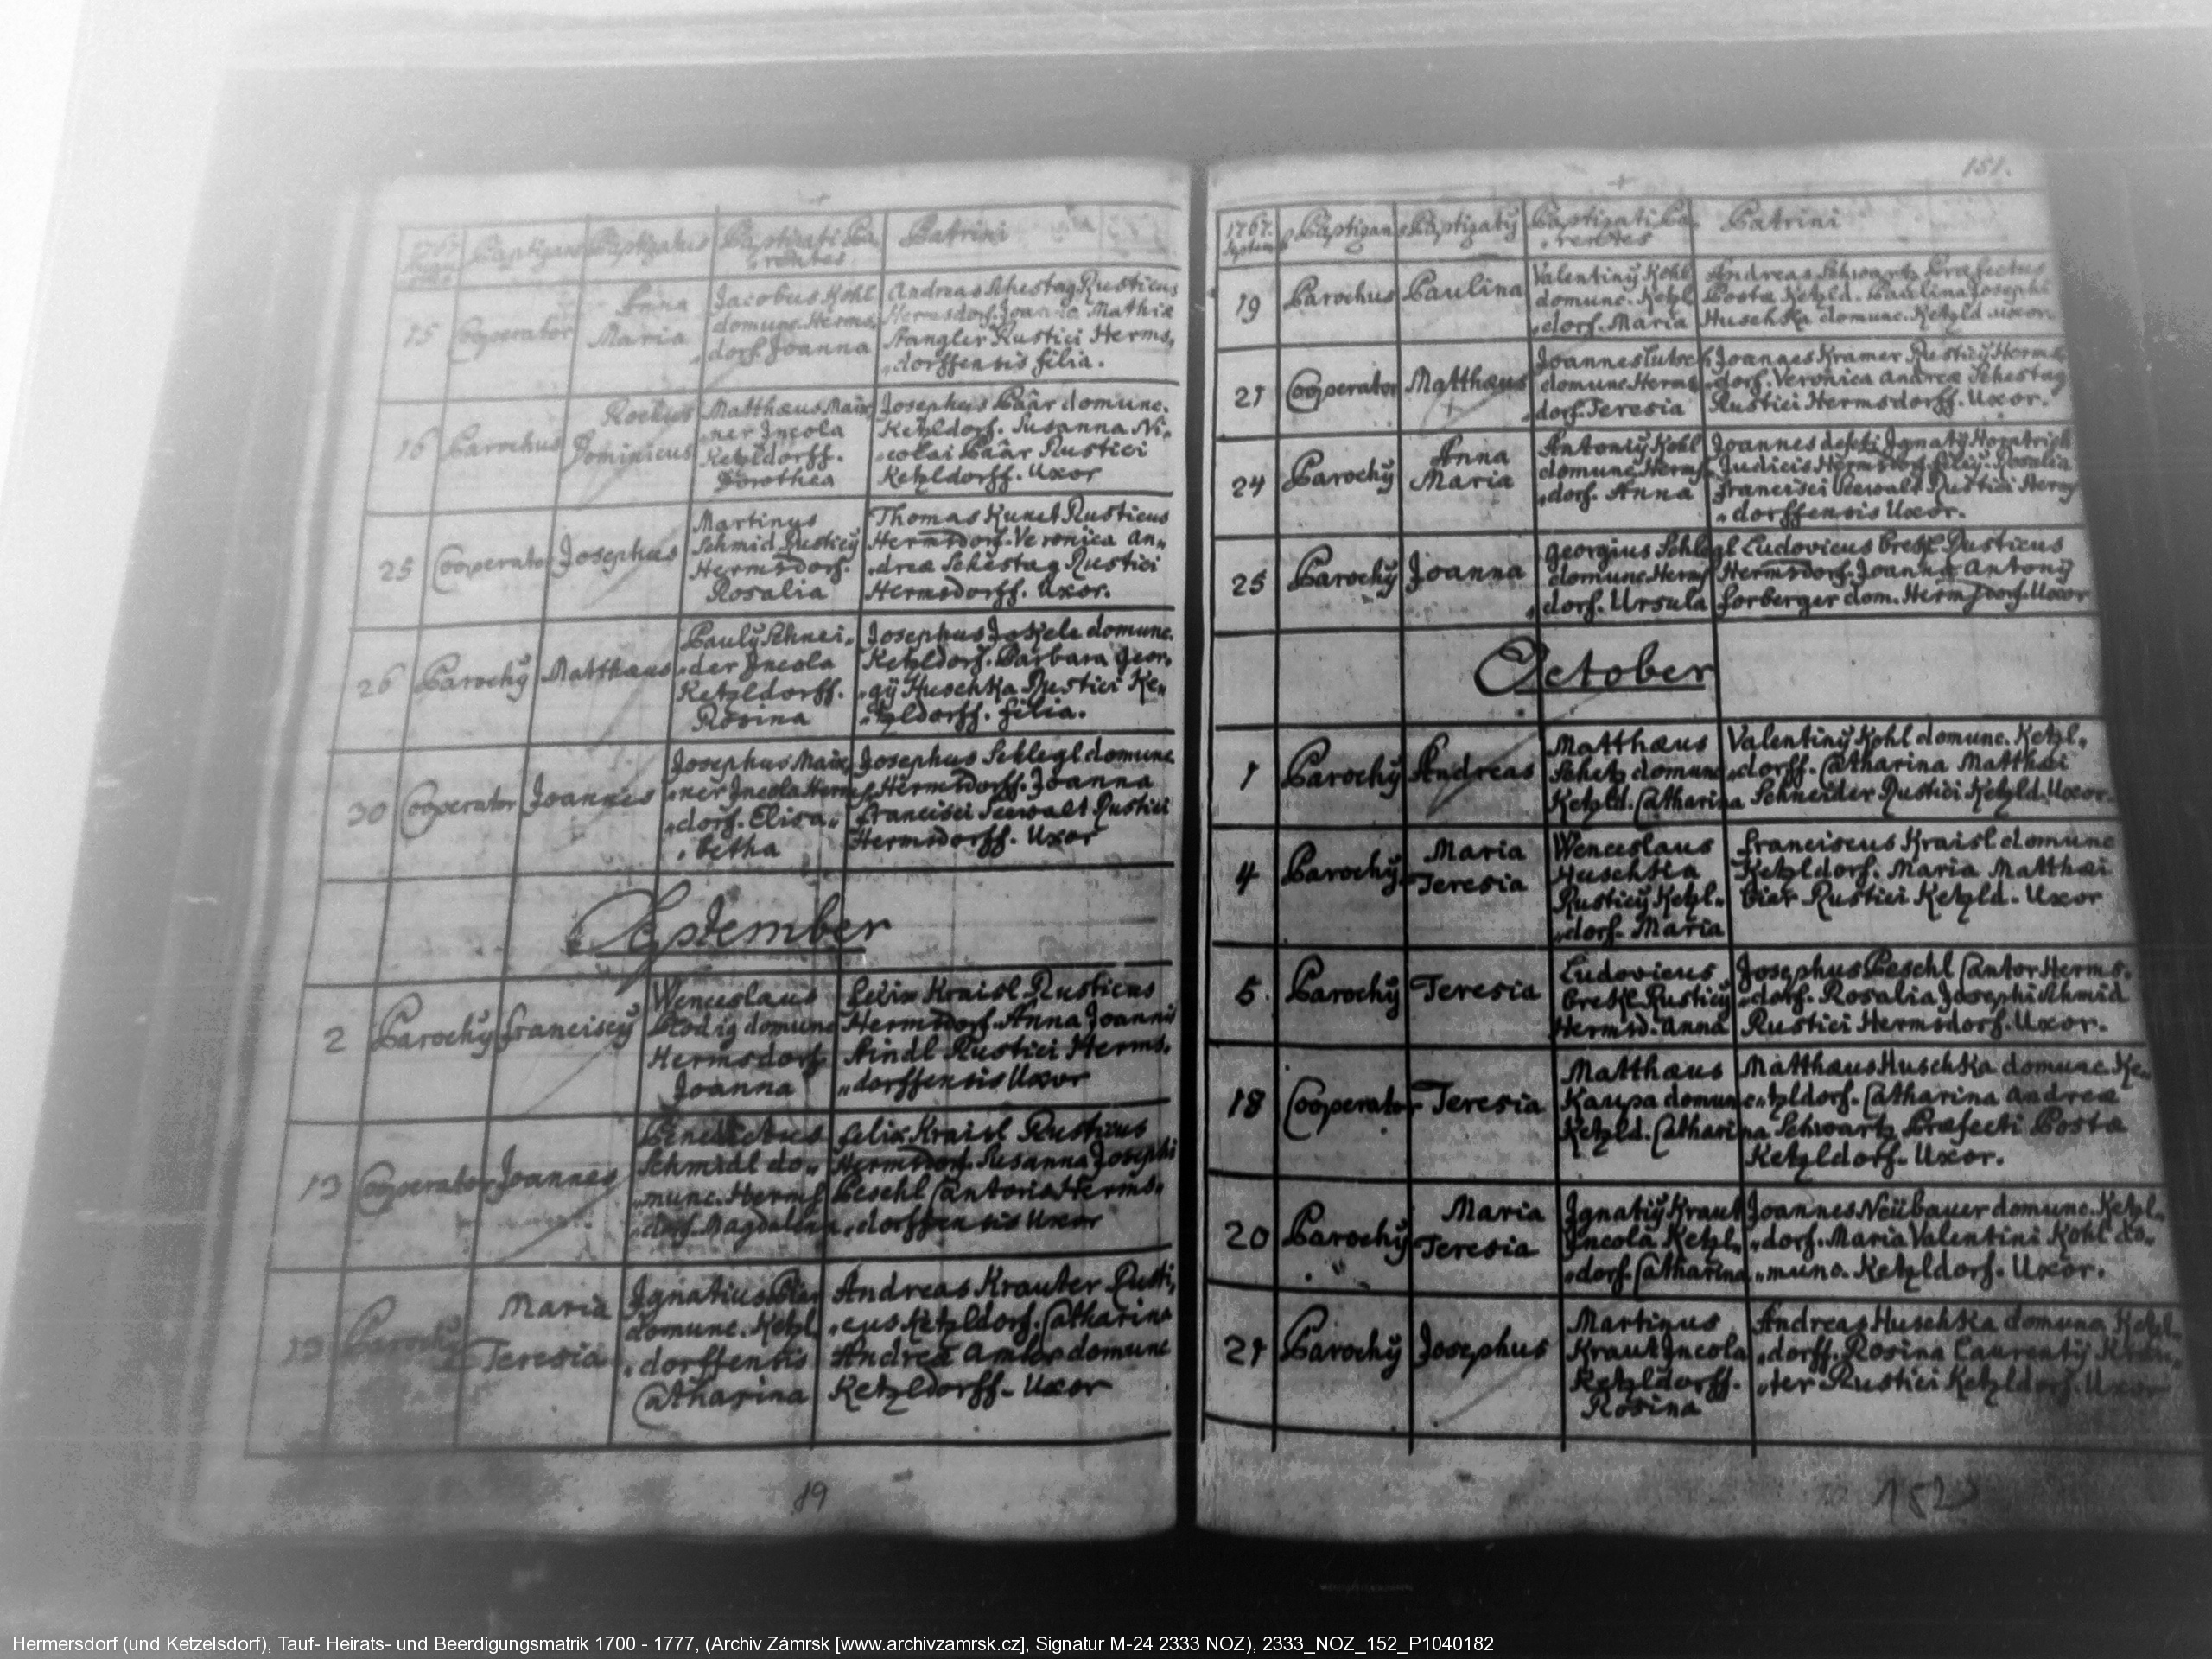 1767
Baptizans Baptizatus Baptizati Pa
rentes
Patrini
15 Cooperator
Anna
Maria
Jacobus Kohl
domunc. Herms,
„dorf. Joanna
Andreas Schestag Rusticus
Hermsdorf. Joanna Mathiæ
Stangler Rustici Herms,
„dorffensis filia.
16 Parochus
Rochus
Dominicus
Matthæus Maix,
„ner Incola
Ketzldorff.
Dorothea
Josephus Päär domunc.
Ketzldorf. Susanna Ni,
„colai Päär Rustici
Ketzldorff. Uxor
25 Cooperator Josephus
Martinus
Schmid Rusticy
Hermsdorf.
Rosalia
Thomas Kunet Rusticus
Hermsdorf. Veronica An„
„dreæ Schestag Rustici
Hermsdorff. Uxor.
26 Parochy Matthæus
Pauly Schnei„
„der Incola
Ketzldorff.
Rosina
Josephus domunc.
Ketzldorf. Barbara Geor,
„gy Huschka Rustici Ke„
„tzldorff. filia.
30 Cooperator Joannes
Josephus Maix,
„ner Incola Herms,
„dorf. Elisa„
„betha
Josephus Schlegl domunc
Hermsdorff. Joanna
Francisci Seewalt Rustici
Hermsdorff. Uxor
September
2 Parochy Franciscy
Wenceslaus
Rodig domunc
Hermsdorf.
Joanna
Felix Kraisl Rusticus
Hermsdorf. Anna Joannis
Aindl Rustici Herms.
„dorffensis Uxor
13 Cooperator Joannes
Benedictus
Schmidl do„
„munc. Herms
„dorf. Magdalena
Felix Kraisl Rusticus
Hermsdorf. Susanna Josephi
Peschl Cantoris Herms„
„dorffensis Uxor
13 Parochy
Maria
Teresia
Ignatius Bier
domunc. Ketzl
„dorffensis
Catharina
Andreas Krauter Rusti,
„cus Ketzldorf. Catharina
Andreæ Amler domunc
Ketzldorff. Uxor
19
151.
1767.
Septemb
Baptizans Baptizaty Baptizati Pa.
„rentes
Patrini
19 Parochus Paulina
Valentiny Kohl
domunc. Ketzl
„dorf. Maria
Andreas Schwartz Præfectus
Postæ Ketzld. Paulina Josephi
Huschka domunc. Ketzld. uxor.
21 Cooperator Matthæus
Joannes Lutsch
domunc. Herms
„dorf. Teresia
Joannes Kramer Rusticy Herms
„dorf. Veronica Andreæ Schestag
Rustici Hermsdorff. Uxor.
24 Parochy
Anna
Maria
Antoniy Kohl
domunc. Herms
„dorf. Anna
Joannes defti Ignaty
Judicis Hermsdorf. filiy. Rosalia
Francisci Seewalt Rustici Herms
„dorffensis Uxor.
25 Parochy Joanna
Georgius Schlegl
domunc. Herms
„dorf. Ursula
Ludovicus Breßl Rusticus
Hermsdorf. Joanna Antony
Forberger dom. Hermsdorf. Uxor
October
1 Parochy Andreas
Matthæus
Schetz domunc
Ketzld. Catharina
Valentiny Kohl domunc. Ketzl.
„dorff. Catharina Matthæi
Schneider Rustici Ketzld. Uxor.
4 Parochy
Maria
Teresia
Wenceslaus
Huschka
Rusticy Ketzl„
„dorf. Maria
Franciscus Kraisl domunc
Ketzldorf. Maria Matthæi
Bier Rustici Ketzld. Uxor
5. Parochy Teresia
Ludovicus
Breßl Rusticy
Hermsd. Anna
Josephus Peschl Cantor Herms.
„dorf. Rosalia Josephi Schmid
Rustici Hermsdorf. Uxor.
18 Cooperator Teresia
Matthæus
Kaupa domunc
Ketzld. Catharina
Matthæus Huschka domunc. Ke„
„tzldorf. Catharina Andreæ
Schwartz Præfecti Postæ
Ketzldorf. Uxor.
20 Parochy
Maria
Teresia
Ignatiy Kraut
Incola Ketzl„
„dorf. Catharina
Joannes Neübauer domunc. Ketzl„
„dorf. Maria Valentini Kohl do„
„munc. Ketzldorf. Uxor.
21 Parochy Josephus
Martinus
Kraut Incola
Ketzldorff.
Rosina
Andreas Huschka domunc. Ketzl„
„dorff. Rosina Laurenty Krau„
„ter Rustici Ketzldorf. Uxor
152
Hermersdorf (und Ketzelsdorf), Tauf- Heirats- und Beerdigungsmatrik 1700 - 1777, (Archiv Zámrsk [www.archivzamrsk.cz], Signatur M-24 2333 NOZ), 2333_NOZ_152_P1040182